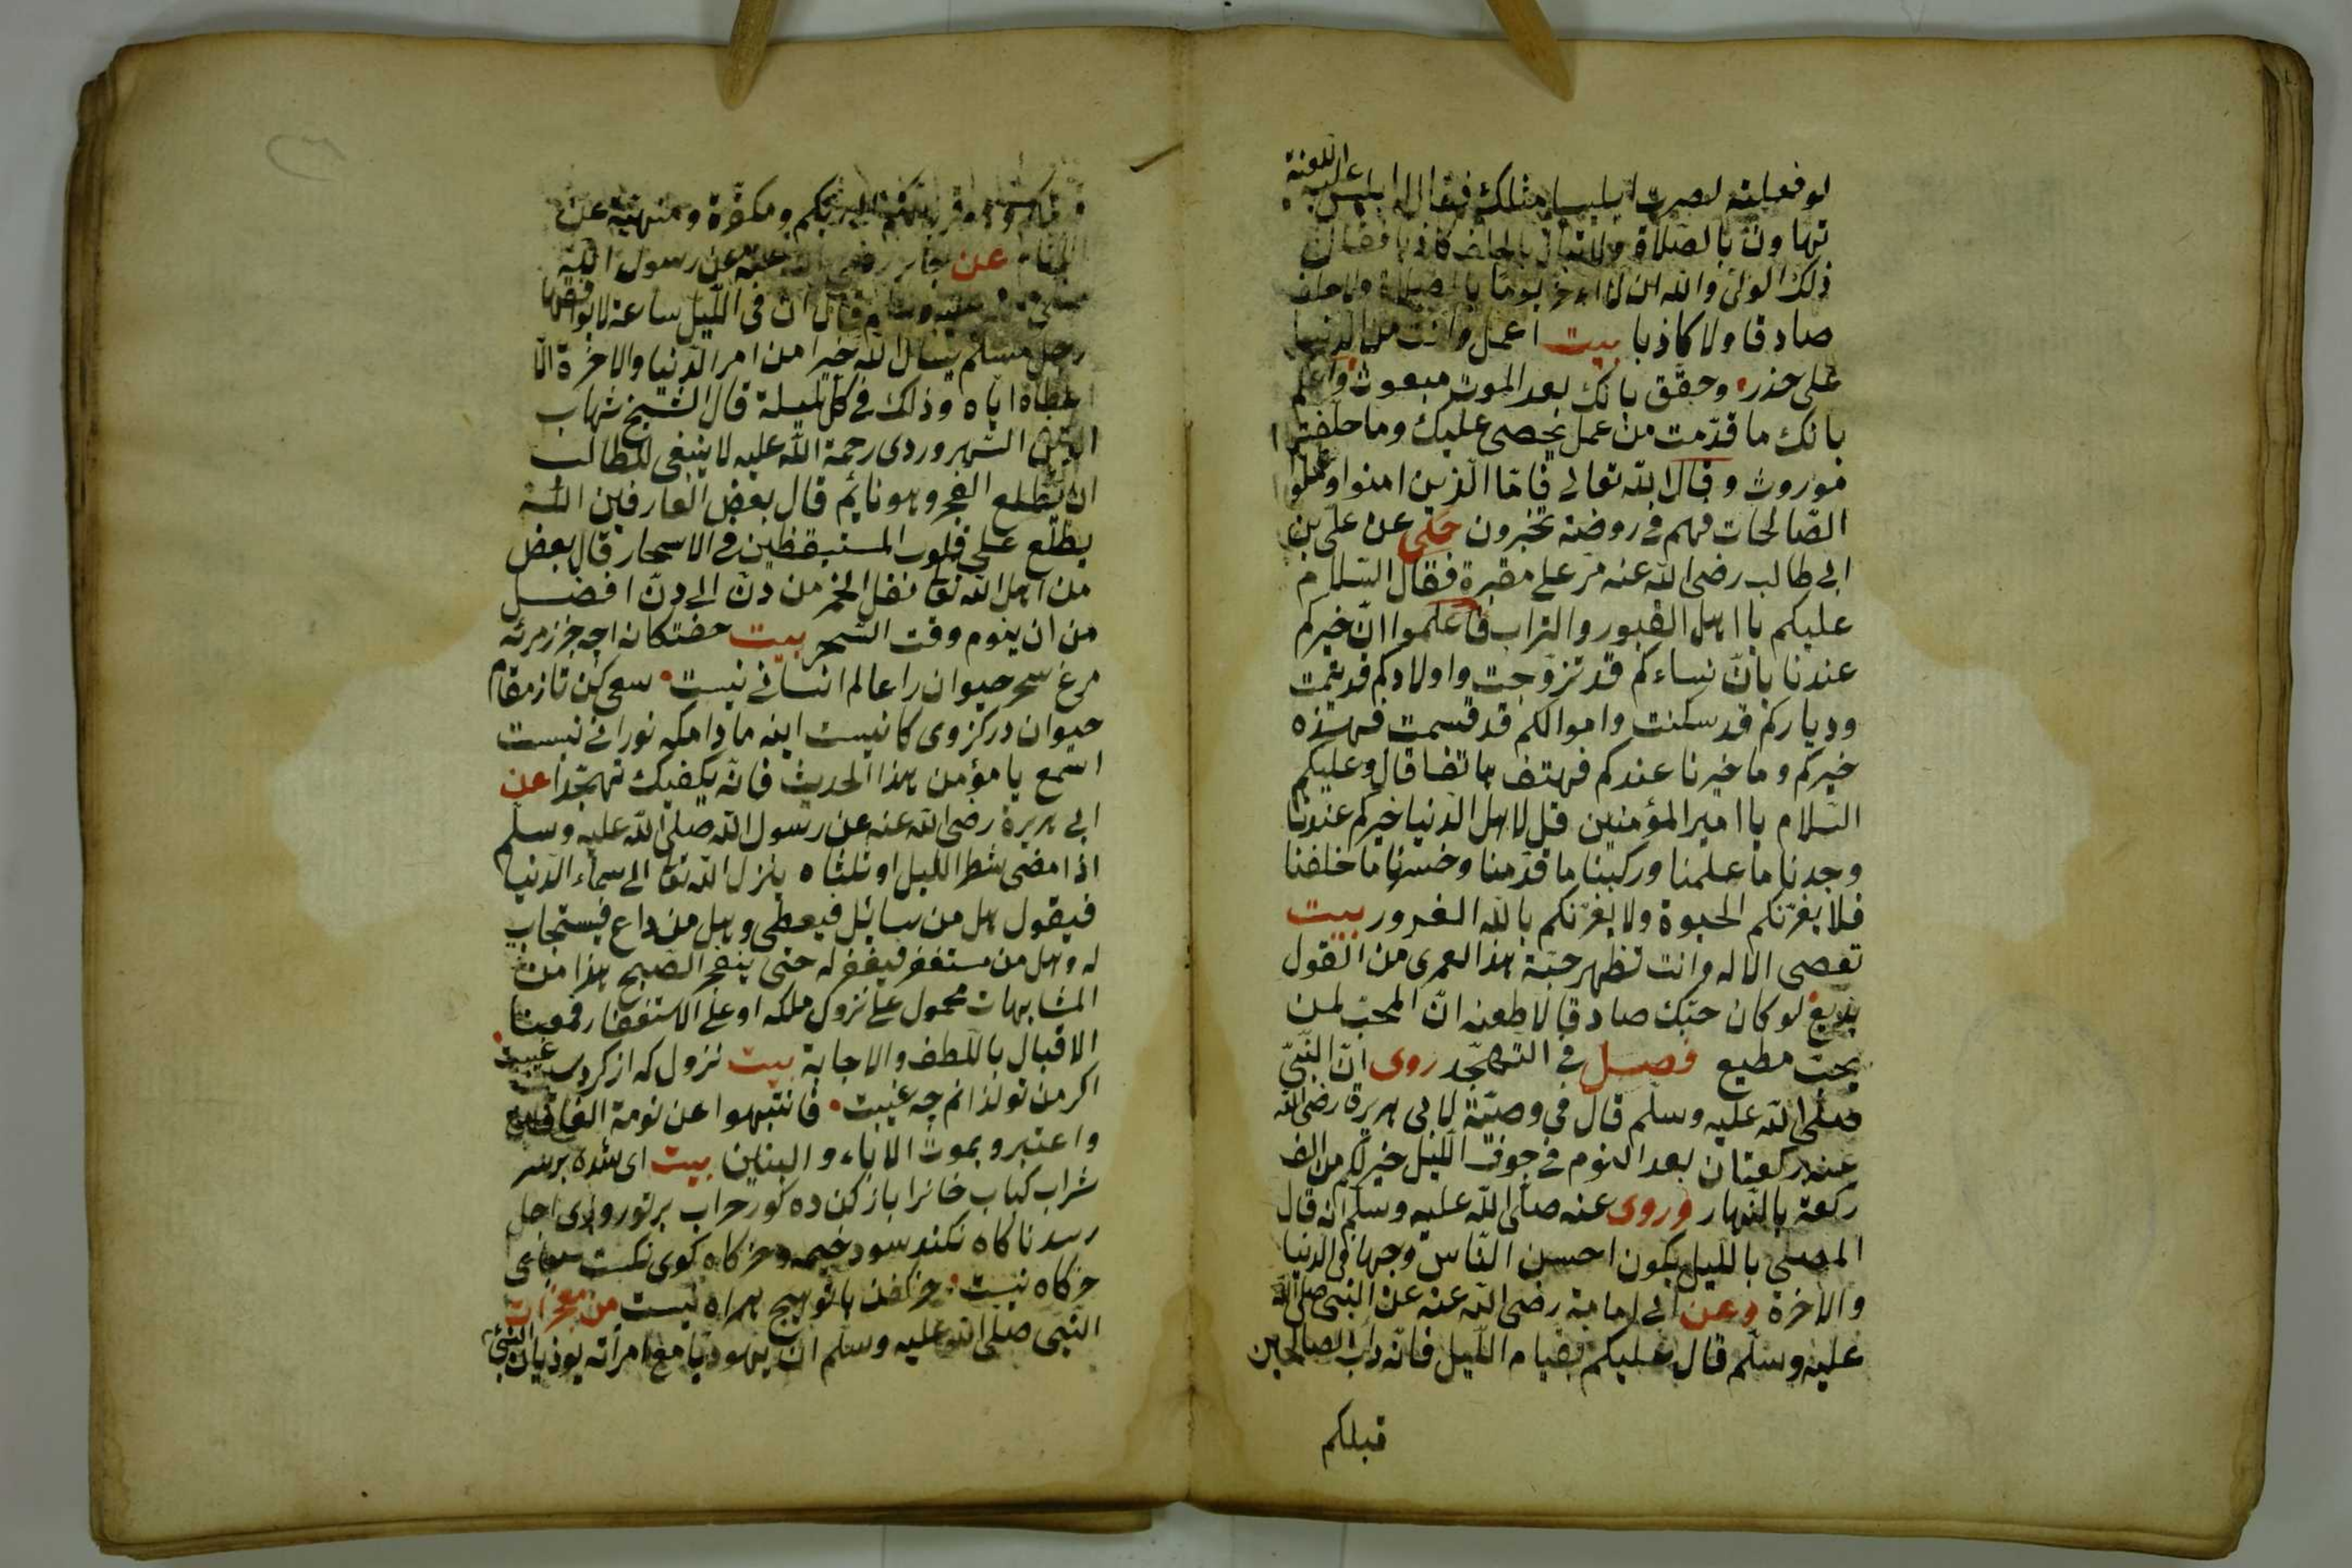 لو فعلته لصرت ابليسا مثلك فقال ابليس عليه اللعنة
تهاون بالصلاة ولا تبال بالحلف كاذبا فقال
ذلك الولى والله انى لا اؤخر يوما بالصلاة ولا احلف
صادقا ولا كاذبا بيت اعمل وانت من الدنيا
على حذر وحقق بانك بعد الموت مبعوث واعلم
بانك ما قدّمت من عمل يحصى عليك وما خلفت
موروث وقال الله تعالى فامّا الّذين امنوا وعملوا
الصّالحات فهم فى روضة يحبرون حكى عن علىّ بن
ابى طالب رضى الله عنه مرّ على مقبرة فقال السّلام
عليكم يا اهل القبور والتراب فاعلموا انّ خيركم
عندنا بانّ نساءكم قد تزوّجت واولادكم قد يتمت
ودياركم قد سكنت واموالكم قد قسمت فهذه
خيركم وما خيرنا عندكم فهتف هاتفا قال وعليكم
السّلام يا امير المؤمنين قل لاهل الدّنيا خيركم عندنا
وجدنا ما علمنا وركبنا ما قدّمنا وخسرنا ما خلفنا
فلا يغرّنكم الحيوة ولا يغرّنكم بالله الغرور بيت
تعصى الاله وانت تظهر حبّه هذا لعمرى من القول
بديع لو كان حبّك صادقا لاطعته انّ المحبّ لمن
يحبّ مطيع فصل فى التّهجّد روى انّ النّبىّ
صلى الله عليه وسلّم قال فى وصيّة لابى هريرة رضى الله
عنه ركعتان بعد النوم فى جوف اللّيل خير لكم من الف
ركعة بالنّهار وروى عنه صلّى الله عليه وسلّم انه قال
المصلى باللّيل يكون احسن النّاس وجها فى الدّنيا
والاخرة وعن ابى امامة رضى الله عنه عن النبى صلى الله
عليه وسلّم قال عليكم بقيام اللّيل فانّه داب الصالحين
قبلكم
الى ربّكم ومكفّرة ومنهيّة عن
عن جابر رضى الله عنه عن رسول الله
صلى الله عليه وسلم قال ان فى اللّيل ساعة لا يوافقها
رجل مسلم يسأل الله خيرا من امر الدّنيا والاخرة الّا
اعطاه ايّاه وذلك فى كلّ ليلة قال الشّيخ شهاب
الدّين السّهروردى رحمة الله عليه لا ينبغى للطالب
ان يطلع الفجر وهو نايم قال بعض العارفين الله
يطّلع على قلوب المستيقظين فى الاسحار قال بعض
من اهل الله تعا نقل الخمر من دنّ الى دنّ افضل
من ان ينوم وقت السّحر بيت
مرغ سحر حيوان را عالم انسانى نيست سعى كن تا ز مقام
حيوان در نيست نورانى نيست
اسمع يا مؤمن هذا الحديث فانّه يكفيك تهجّدا عن
ابى هريرة رضى الله عنه عن رسول الله صلى الله عليه وسلّم
اذا مضى شطر اللّيل او ثلثاه ينزل الله تعا الى سماء الدّنيا
فيقول هل من سائل فيعطى وهل من داع فيستجاب
له وهل من مستغفر فيغفر له حتى ينفجر الصّبح هذا من
المتشابهات محمول على نزول ملكه او على الاستغفار فمعنا
الاقبال باللّطف والاجابة بيت نزول كه از
اكر من تو فانتبهوا عن نومة الغافلين
واعتبرو بموت الاباء والبنين بيت اى شده بر سر
شراب كباب خانرا باز كن ده اجل
رسد ناكاه نكند سود خيمه وخركاه
خركاه نيست با تو هيج همراه نيست من معجزات
النّبى صلى الله عليه وسلّم ان يهوديّا مع امرأته يوذيان النّبىّ